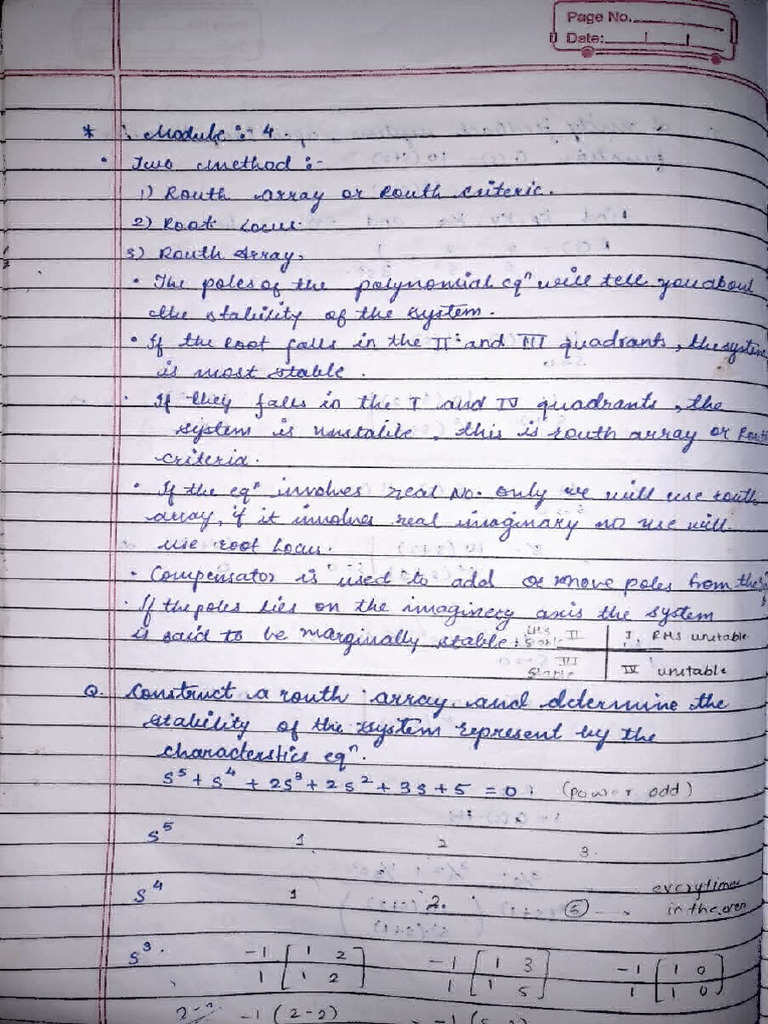 Page No.
Date:
* Module :- 4.
• Two method :-
1) Routh array or Routh criteric.
2) Root Locus.
3) Routh Array.
• The poles of the polynomial eqⁿ will tell you about
the stability of the system.
• If the root falls in the II and III quadrants, the system
is most stable.
• If they falls in the I and IV quadrants, the
system is unstable, this is routh array or Routh
criteria.
• If the eqⁿ involves real No. only we will use routh
array, if it involves real imaginary no we will
use root locus.
• Compensator is used to add or move poles from the
• If the poles lies on the imaginery axis the system
is said to be marginally stable.
LHS stable II I RHS unstable
III stable IV unstable
Q. Construct a routh array and determine the
stability of the system represent by the
characterstics eqⁿ.
s⁵ + s⁴ + 2s³ + 2s² + 3s + 5 = 0. (power odd)
s⁵ 1 2 3.
s⁴ 1 2. 5 everytime
in the even
s³. -1/1 [1 2 / 1 2] -1/1 [1 3 / 1 5] -1/1 [1 0 / 1 0]
-1 (2-2)